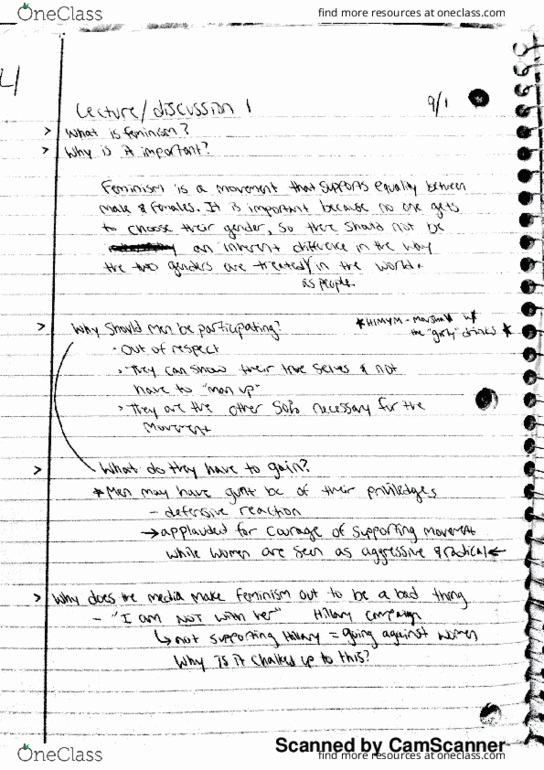 OneClass
find more resources at oneclass.com
Lecture/discussion 1 9/1
> What is feminism?
> Why is it important?
Feminism is a movement that supports equality between
male & females. It is important because no one gets
to choose their gender, so there should not be
an inherent difference in the way
the two genders are treated/in the world.
as people.
> Why should men be participating?
*HIMYM - Marshall w/
the "girly" drinks *
· Out of respect
· They can show their true selves & not
have to "man up"
· They are the other 50% necessary for the
movement
> What do they have to gain?
* Men may have guilt bc of their priviledges
- defensive reaction
→ applauded for courage of supporting movement
while women are seen as aggressive & radical ←
> Why does the media make feminism out to be a bad thing
- "I am NOT with her" Hillary campaign
↳ not supporting Hillary = going against women
Why is it chalked up to this?
Scanned by CamScanner
OneClass
find more resources at oneclass.com